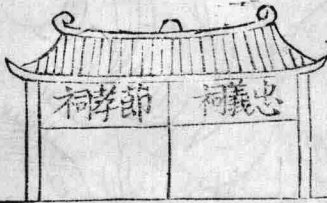 忠義祠
節孝祠